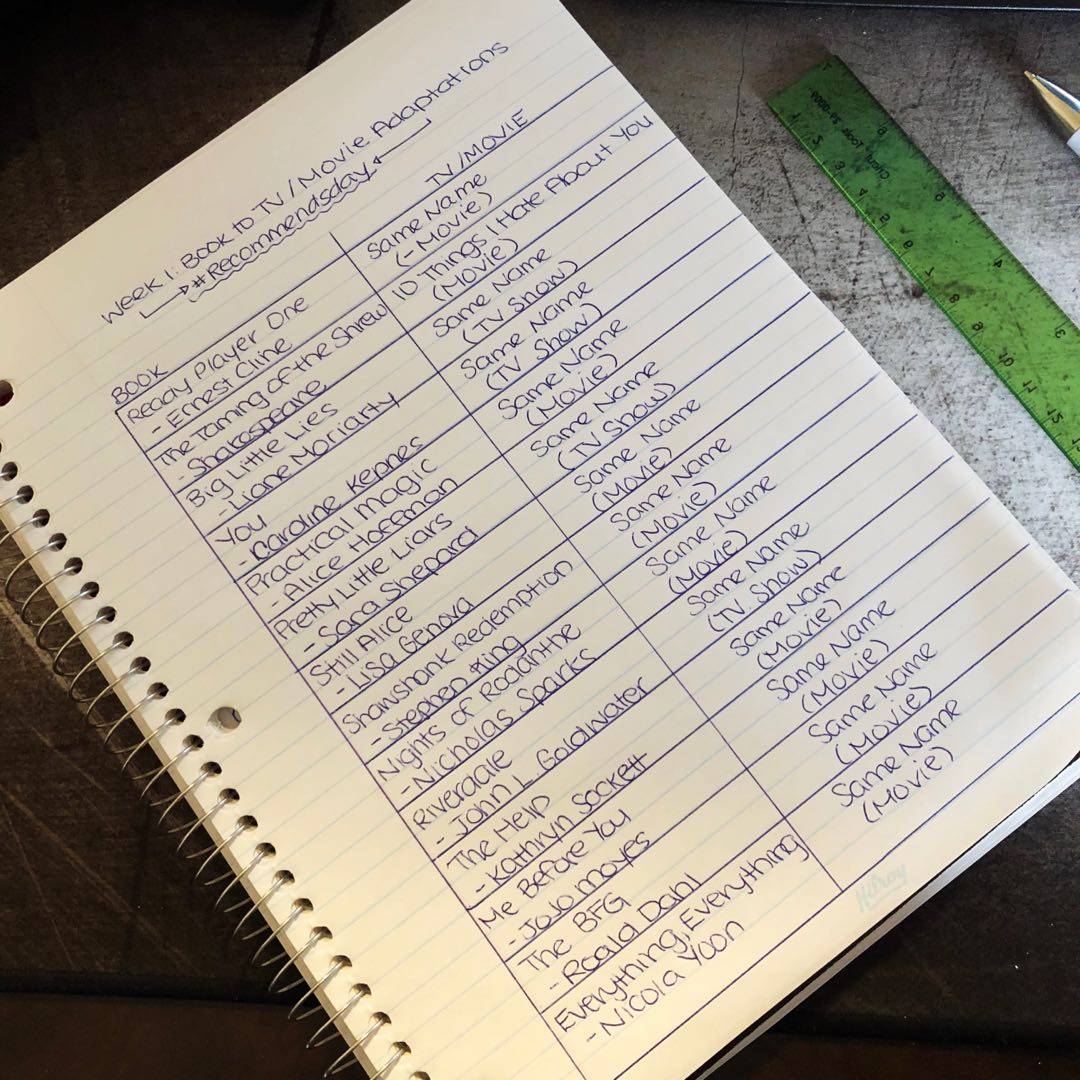 Week 1: Book to TV/Movie Adaptations
#Recommendsday
BOOK TV/MOVIE
Ready Player One Same Name
- Ernest Cline (- Movie)
The Taming of the Shrew 10 Things I Hate About You
- Shakespeare (Movie)
Big Little Lies Same Name
- Liane Moriarty (TV Show)
You Same Name
- Caroline Kepnes (TV Show)
Practical Magic Same Name
- Alice Hoffman (Movie)
Pretty Little Liars Same Name
- Sara Shepard (TV Show)
Still Alice Same Name
- Lisa Genova (Movie)
Shawshank Redemption Same Name
- Stephen King (Movie)
Nights of Rodanthe Same Name
- Nicholas Sparks (Movie)
Riverdale Same Name
- John L. Goldwater (TV. Show)
The Help Same Name
- Kathryn Sockett (Movie)
Me Before You Same Name
- JoJo Moyes (Movie)
The BFG Same Name
- Roald Dahl (Movie)
Everything, Everything Same Name
- Nicola Yoon (Movie)
Hilroy